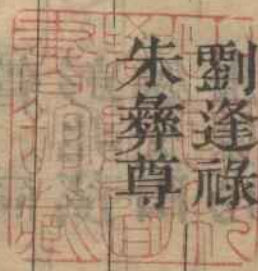 劉逢祿
朱彝尊